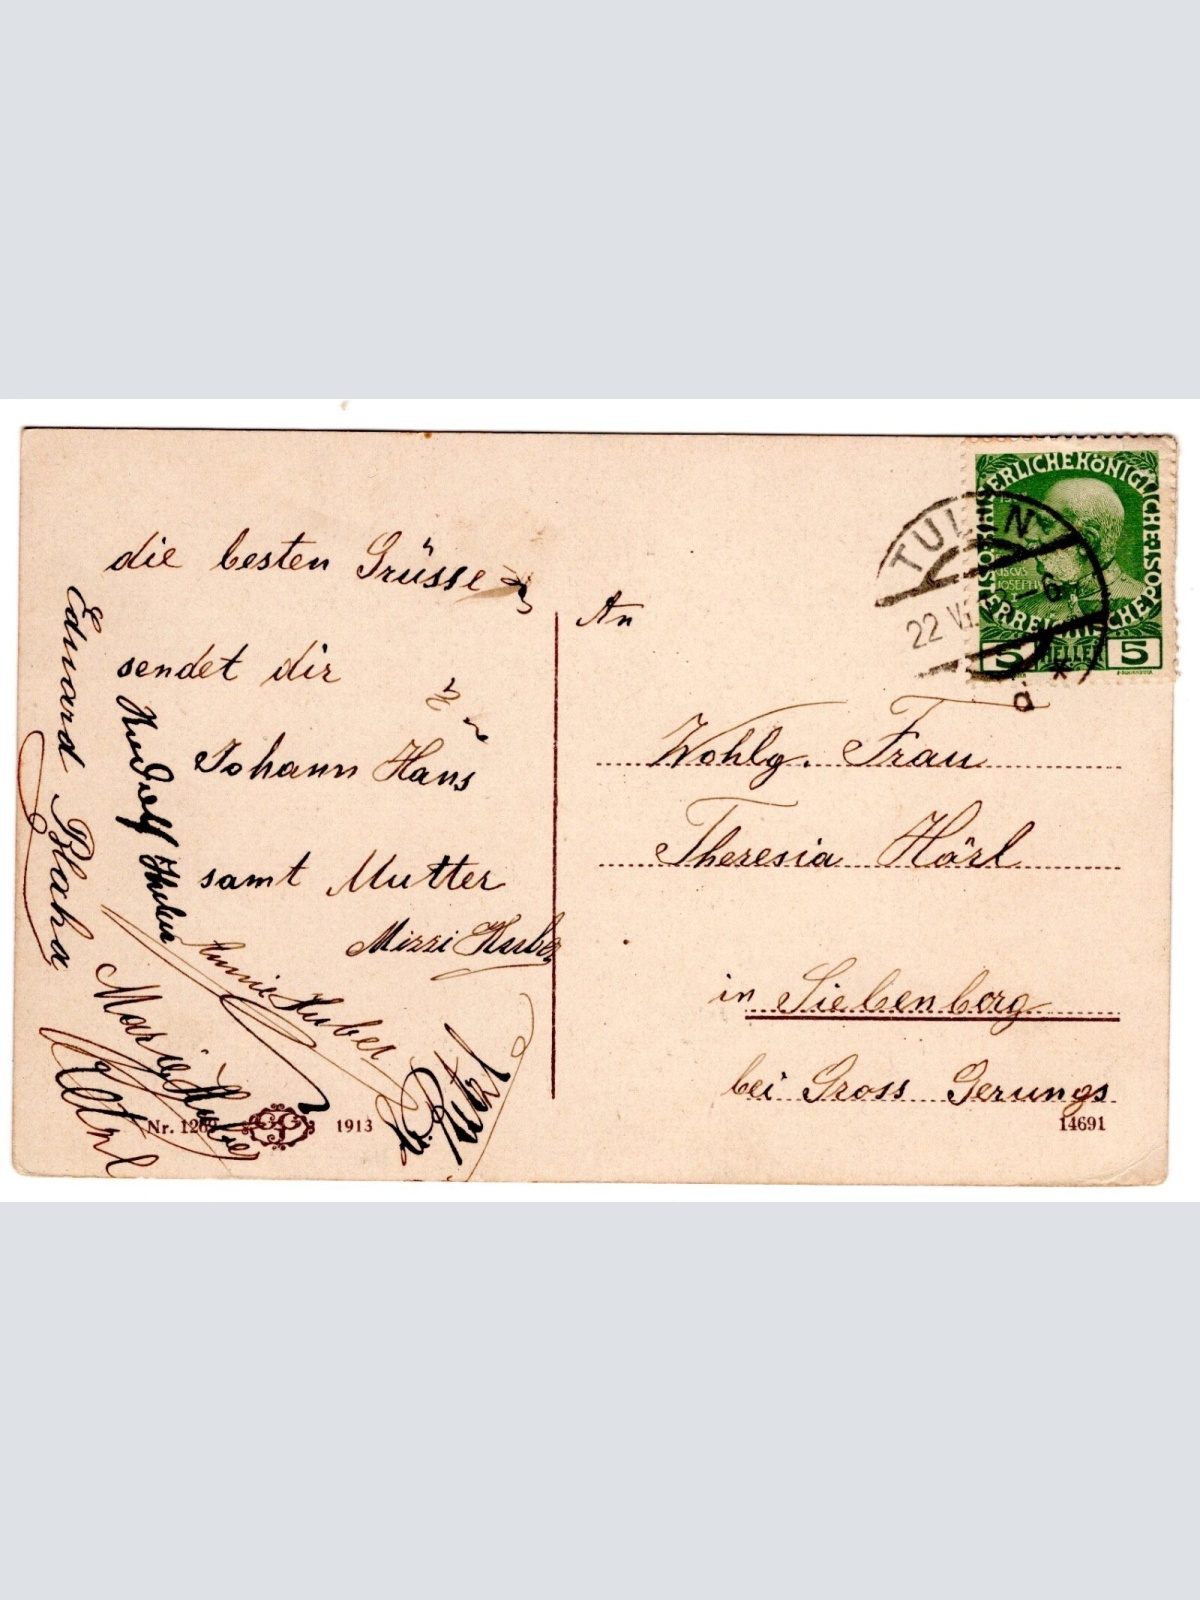 die besten Grüsse
sendet dir
Johann Hans
samt Mutter
Mizzi Huber
Annie Huber
Marie Huber
Rudolf Huber
Eduard Blaha
Nr. 1269
1913
An
Wohlg. Frau
Theresia Hörl
in Siebenberg
bei Gross Gerungs
14691
KAISERLICHE KÖNIGLICHE ÖSTERREICHISCHE POST
FRANCISCUS
JOSEPH I
5 HELLER 5
TULLN
22 VI
-6
d *